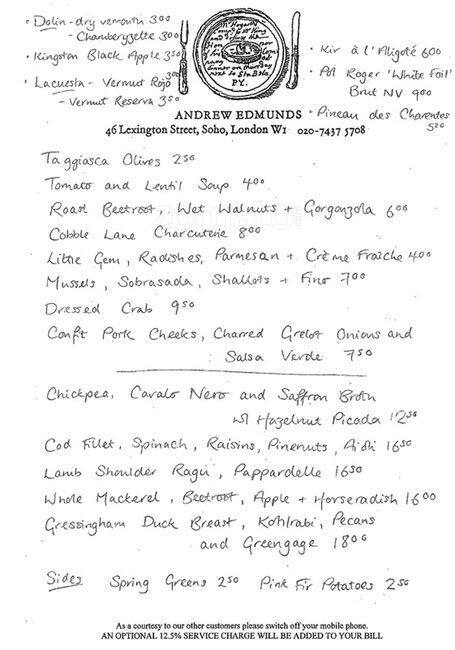 • Dolin - dry vermouth 300
- Chamberyzette 300
• Kingston Black Apple 350
• Lacuesta - Vermut Rojo 300
- Vermut Reserva 350
• Kir à l'Aligoté 600
• Pol Roger 'White Foil'
Brut NV 900
• Pineau des Charentes
520
ANDREW EDMUNDS
46 Lexington Street, Soho, London W1 020-7437 5708
Taggiasca Olives 250
Tomato and Lentil Soup 400
Roast Beetroot, Wet Walnuts + Gorgonzola 600
Cobble Lane Charcuterie 800
Little Gem, Radishes, Parmesan + Crème Fraîche 400
Mussels, Sobrasada, Shallots + Fino 700
Dressed Crab 950
Confit Pork Cheeks, Charred Grelot Onions and
Salsa Verde 750
Chickpea, Cavalo Nero and Saffron Broth
w/ Hazelnut Picada 1250
Cod Fillet, Spinach, Raisins, Pinenuts, Aïoli 1650
Lamb Shoulder Ragù, Pappardelle 1650
Whole Mackerel, Beetroot, Apple + Horseradish 1600
Gressingham Duck Breast, Kohlrabi, Pecans
and Greengage 1800
Sides Spring Greens 250 Pink Fir Potatoes 250
As a courtesy to our other customers please switch off your mobile phone.
AN OPTIONAL 12.5% SERVICE CHARGE WILL BE ADDED TO YOUR BILL